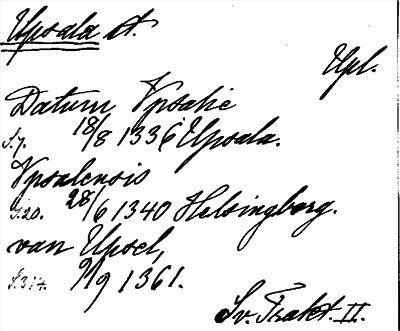 Upsala st.
Upl.
Datum Vpsalie
S.7. 18/8 1336 Upsala.
Vpsalensis
S.20. 28/6 1340 Helsingborg.
van Upsel,
S.314. 9/9 1361.
Sv. Trakt. II.